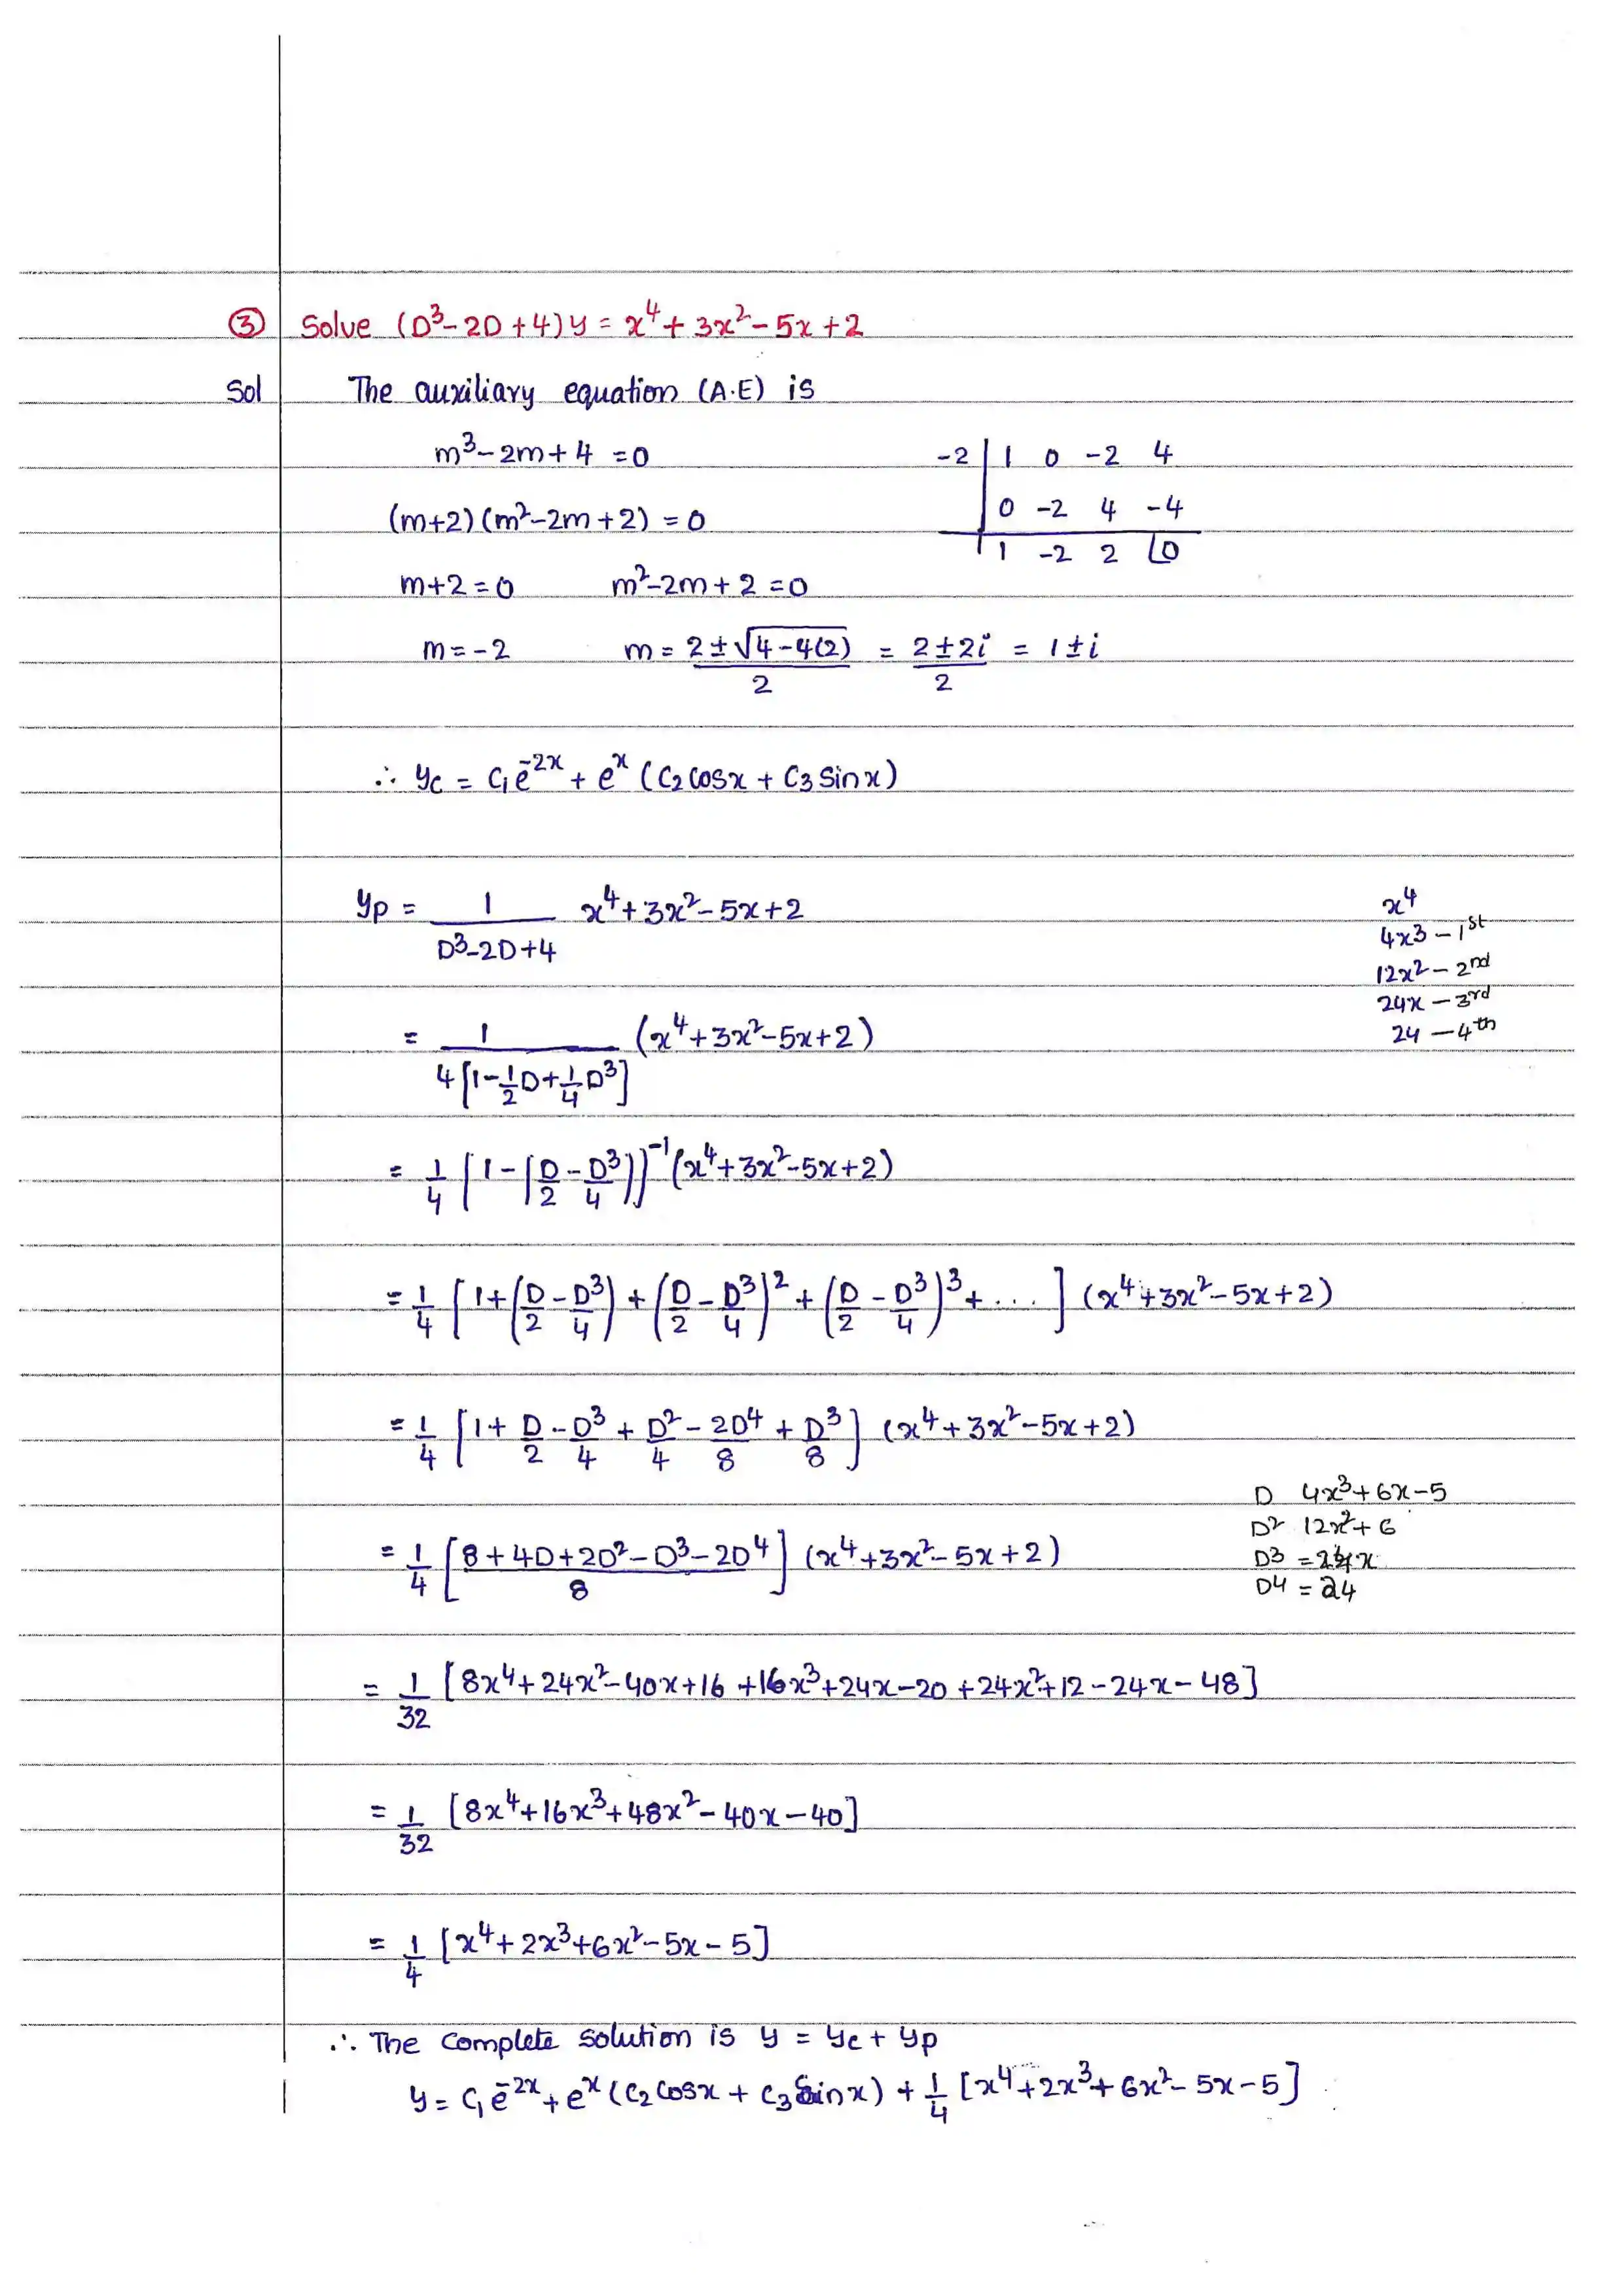 ③ Solve (D³-2D+4)y = x⁴+3x²-5x+2
Sol The auxiliary equation (A.E) is
m³-2m+4 =0
-2 | 1 0 -2 4
(m+2)(m²-2m+2) = 0
0 -2 4 -4
1 -2 2 |0
m+2=0 m²-2m+2=0
m=-2 m = (2±√(4-4(2)))/2 = (2±2i)/2 = 1±i
∴ yc = C₁e^-2x + e^x (C₂cosx + C₃sinx)
yp = 1/(D³-2D+4) x⁴+3x²-5x+2
x⁴
4x3 - 1st
12x2 - 2nd
24x - 3rd
24 - 4th
= 1/(4[1-1/2D+1/4D³]) (x⁴+3x²-5x+2)
= 1/4 [1-(D/2-D³/4)]⁻¹(x⁴+3x²-5x+2)
= 1/4 [1+(D/2-D³/4)+(D/2-D³/4)²+(D/2-D³/4)³+....] (x⁴+3x²-5x+2)
= 1/4 [1+D/2-D³/4+D²/4-2D⁴/8+D³/8] (x⁴+3x²-5x+2)
D 4x³+6x-5
D² 12x²+6
D3 =24x
D4 = 24
= 1/4 [(8+4D+2D²-D³-2D⁴)/8] (x⁴+3x²-5x+2)
= 1/32 [8x⁴+24x²-40x+16+16x³+24x-20+24x²+12-24x-48]
= 1/32 [8x⁴+16x³+48x²-40x-40]
= 1/4 [x⁴+2x³+6x²-5x-5]
∴ The complete solution is y = yc+yp
y= C₁e^-2x+e^x(C₂cosx + C₃sinx) + 1/4 [x⁴+2x³+6x²-5x-5]